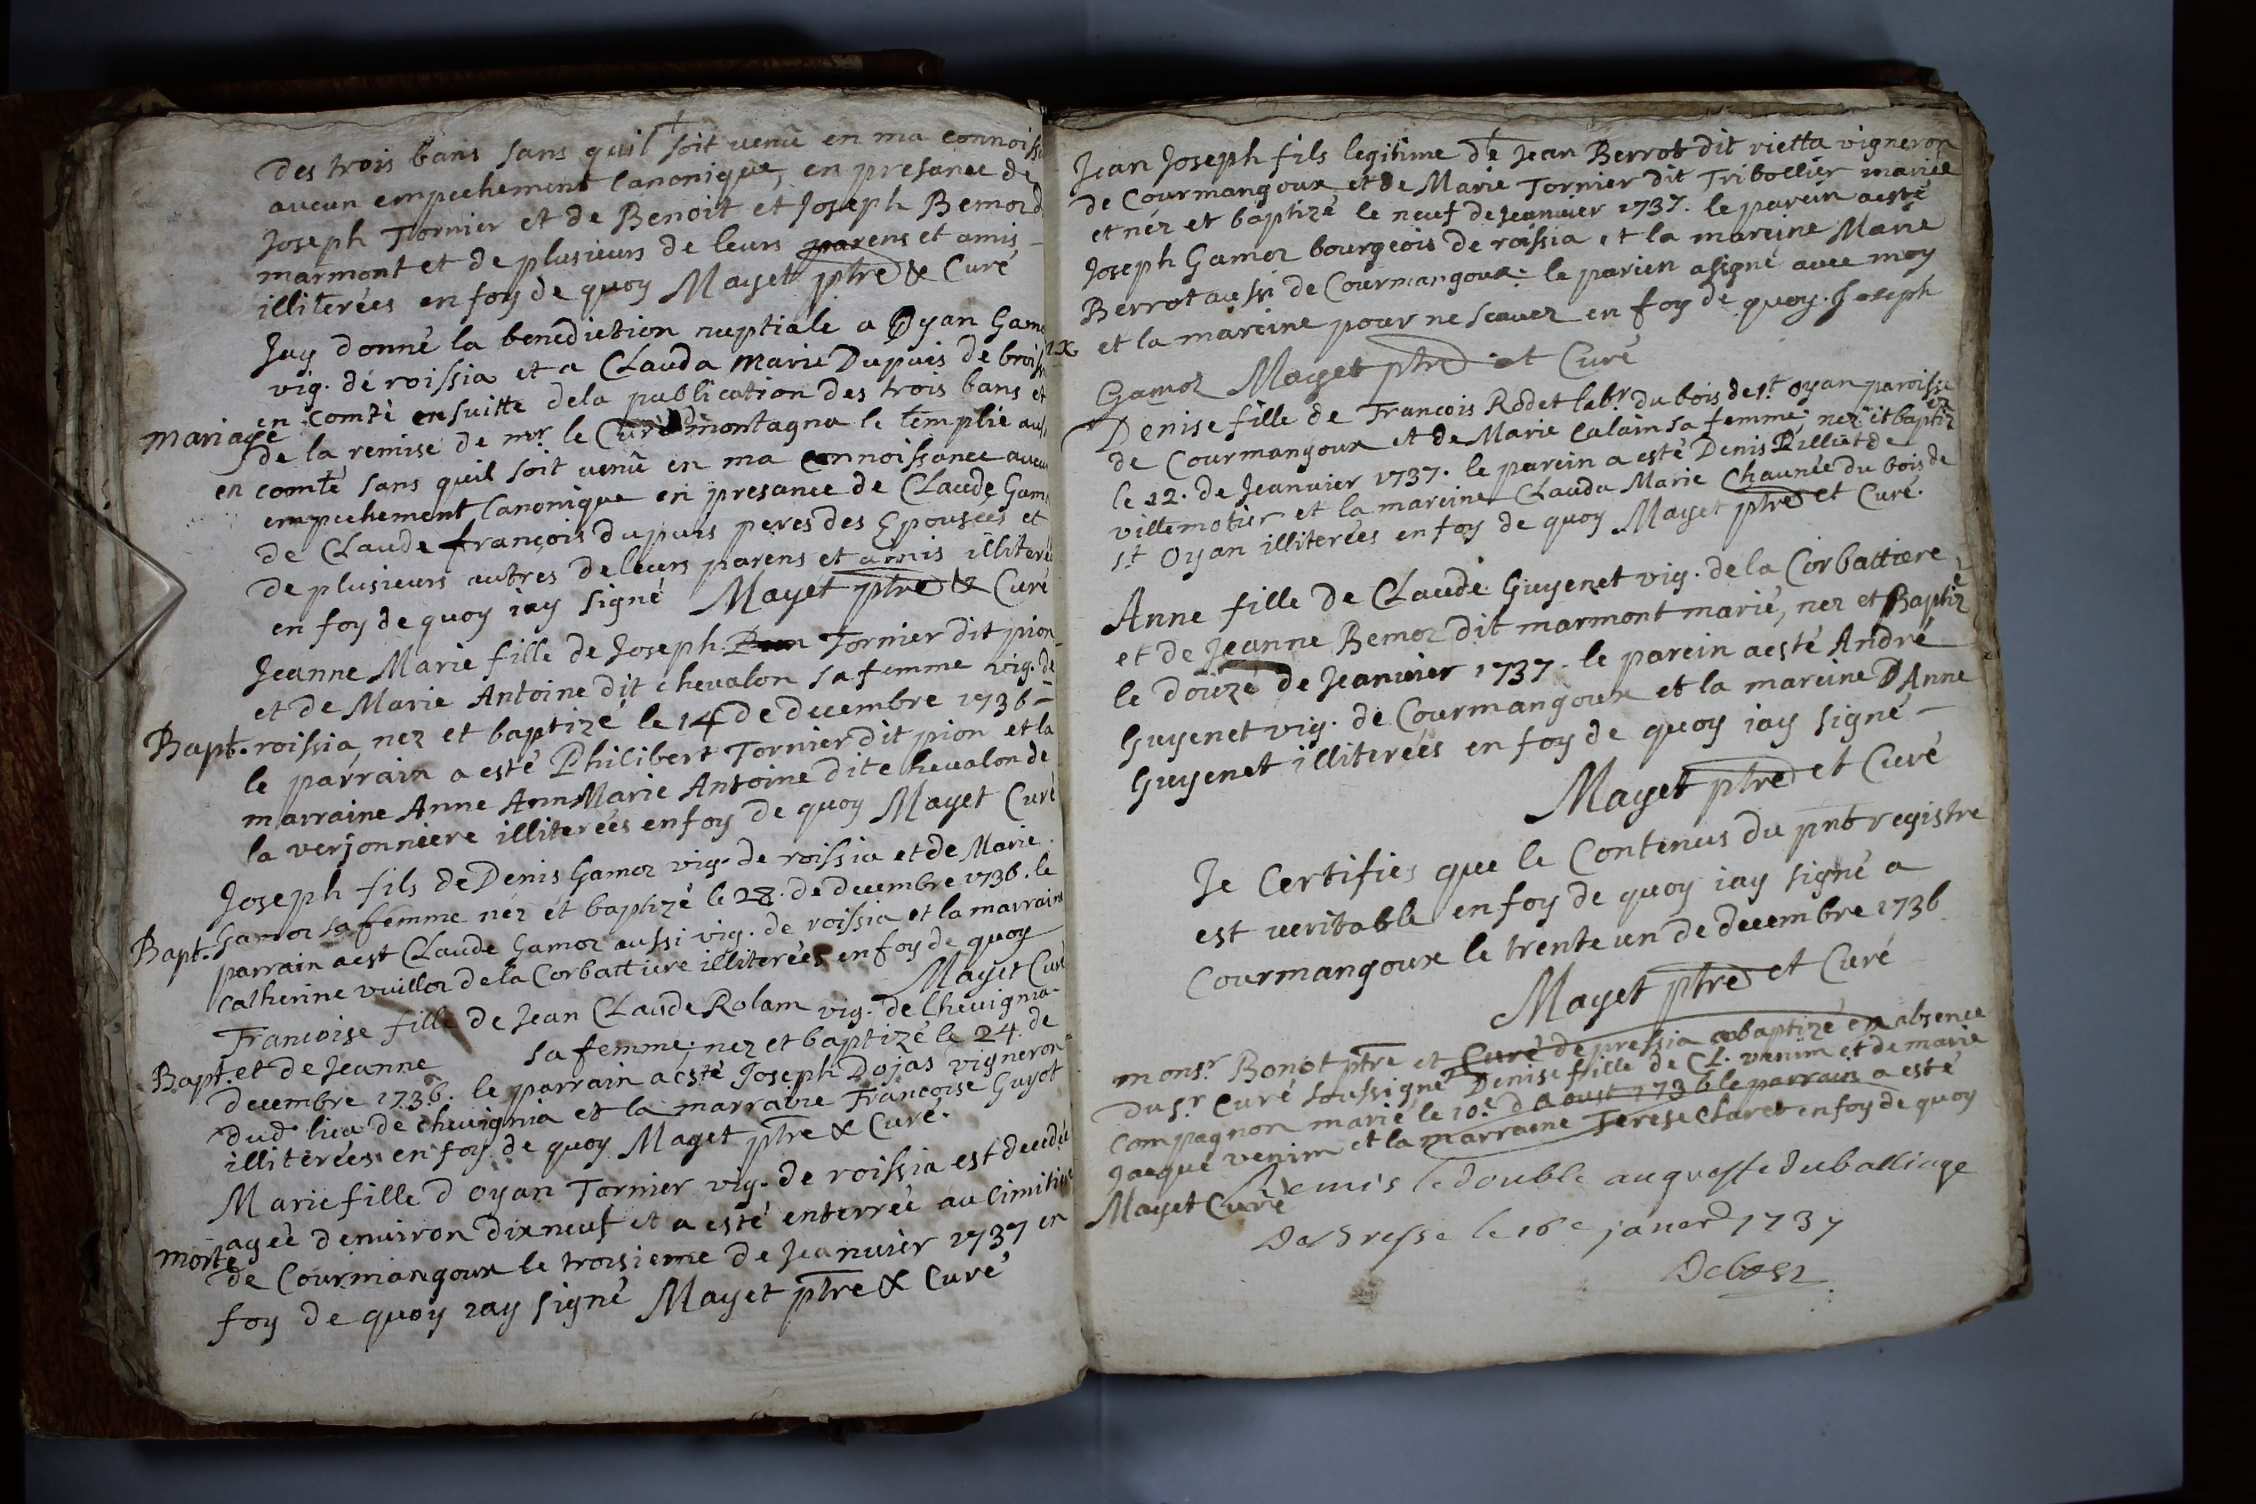 Des trois bans sans quil soit venû en ma connoiss
aucun empechement Canonique, en presance de
Joseph Tornier et de Benoit et Joseph Bemoz d
marmont et de plusieurs de leurs parens et amis –
illiterées en foy de quoy Mayet ptre & Curé
Jay donné la benediction nuptiale a Oyan Gamo
vig. de roissia et a Clauda Marie Dupuis de broiss
en Comté ensuitte dela publication des trois bans et
mariage
de la remise de mr. le Curé montagna le templié aus
en comté sans queil soit venû en ma connoissance aucun
empechement Canonique en presance de Claude Gamo
de Claude françois dupuis peres des Epousees et
de plusieurs autres de leurs parens et amis illiteré
en foy de quoy iay signé Mayet ptre & Curé
Jeanne Marie fille de Joseph Tornier dit pion
et de Marie Antoine dit chevalon sa femme vig. de
Bapt. roissia, nez et baptizé le 14 de decembre 1736 –
le parrain a esté Philibert Tornier dit pion et la
marraine Anne Ann Marie Antoine dite chevalon de
la verjonniere illiterées en foy de quoy Mayet Curé
Joseph fils de Denis Gamoz vig. de roissia et de Marie
Gamoz sa femme nez et baptizé le 28. de decembre 1736. le
Bapt. parrain aest Claude Gamoz aussi vig. de roissia et la marraine
Catherine vuilloz de la Corbattiere illiterées en foy de quoy
Mayet Curé
Francoise fille de Jean Claude Rolam vig. de Chevignia
Bapt. et de Jeanne sa femme; nez et baptizé le 24. de
decembre 1736. le parrain a esté Joseph Dojas vigneron
dud lieu de chevignia et la marraine Francoise Guyot
illiterées en foy de quoy Mayet ptre & Curé.
Marie fille d oyan Tornier vig. de roissia est decedée
ageé denviron dix neuf et a esté enterrée au Cimitiere
morte
de Courmangoux le troisieme de Jeanvier 1737 en
foy de quoy iay signé Mayet ptre & Curé
Jean Joseph fils legitime de Jean Berrot dit vietta vigneron
de Courmangoux et de Marie Tornier dit Tribollier mariée
et néz et baptizé le neuf de Jeanvier 1737. le parein aesté
Joseph Gamoz bourgeois de roissia et la mareine Marie
Berrot aussi de Courmangoux: le parien a signé avec moy
et la mareine pour ne scavez en foy de quoy. Joseph
Gamoz Mayet ptre et Curé
Denise fille de Francois Rodet labr. du bois de st. oyan paroisse
de Courmangoux et de Marie Calain sa femme; nez et baptizé
le 12. de Jeanvier 1737. le parein a esté Denis Pilliet de
villemotier et la mareine Clauda Marie Chaunée du bois de
st Oyan illiterées en foy de quoy Mayet ptre et Curé.
Anne fille de Claude Guyenet vig. de la Corbattiere
et de Jeanne Bemoz dit marmont marié, nez et Baptizé
le douzé de Jeanvier 1737. le parein aesté André
Guyenet vig. de Courmangoux et la mareine D Anne
Guyenet illiterées en foy de quoy iay signé –
Mayet ptre et Curé
Je Certifies que le Contenus du pnt registre
est veritable en foy de quoy iay signé a
Courmangoux le trente un de decembre 1736
Mayet ptre et Curé
monsr. Bonot ptre et Curé de pressia a baptizé en absence
du sr. Curé soussigné Denise fille de Cl. venim et de marie
Compagnon marié le 10e. d Aoust 1736 le parrain a esté
Jaque venim et la marraine Terese Claret en foy de quoy
Mayet Curé
Remis le double au greffe du balliage
De bresse le 16e janer 1737